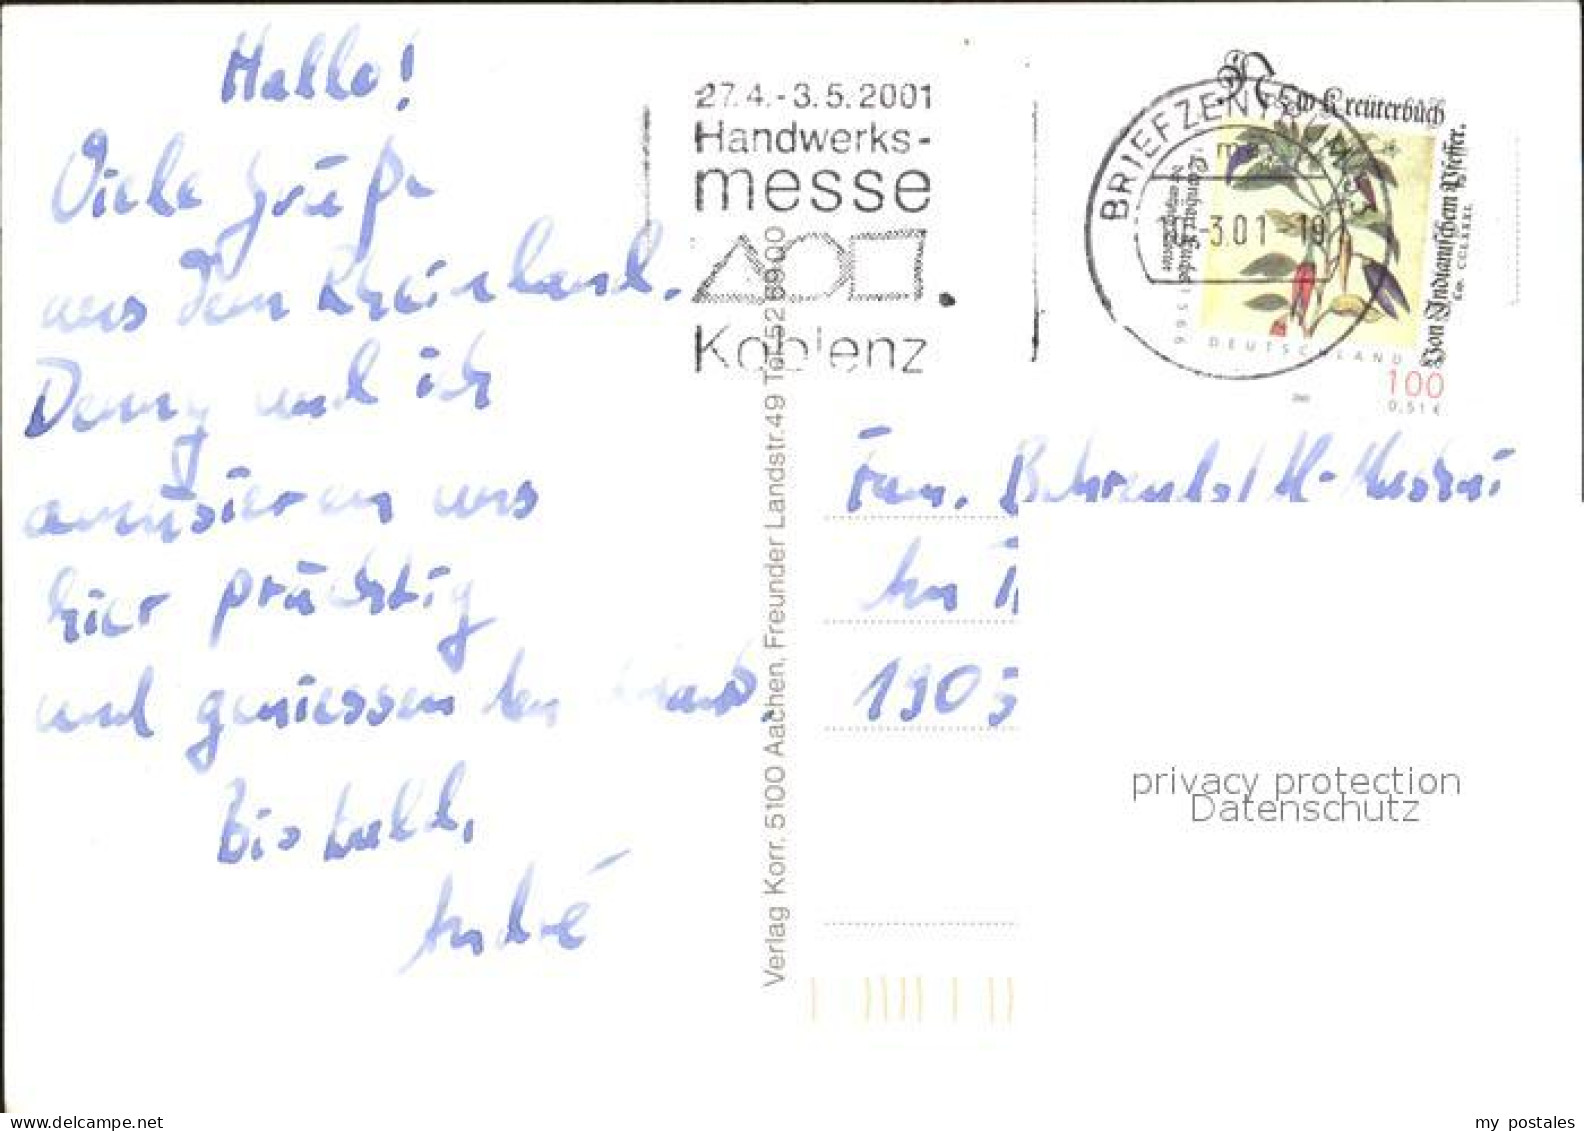 Hallo!
Viele Grüße
aus dem Rheinland.
Denny und ich
amüsieren uns
hier prächtig
und geniessen den
Bis bald,
André
27.4.-3.5.2001
Handwerks-
messe
Koblenz
Verlag Korr. 5100 Aachen, Freunder Landstr. 49 Tel. 52 69 00
BRIEFZENTRUM 53
3.01-19
New Kreüterbůch
Von Indianischem Pfeffer.
Cap. CCLXXXI.
DEUTSCHLAND
100
0,51 €
2001
Fam.
1903
privacy protection
Datenschutz
my postales